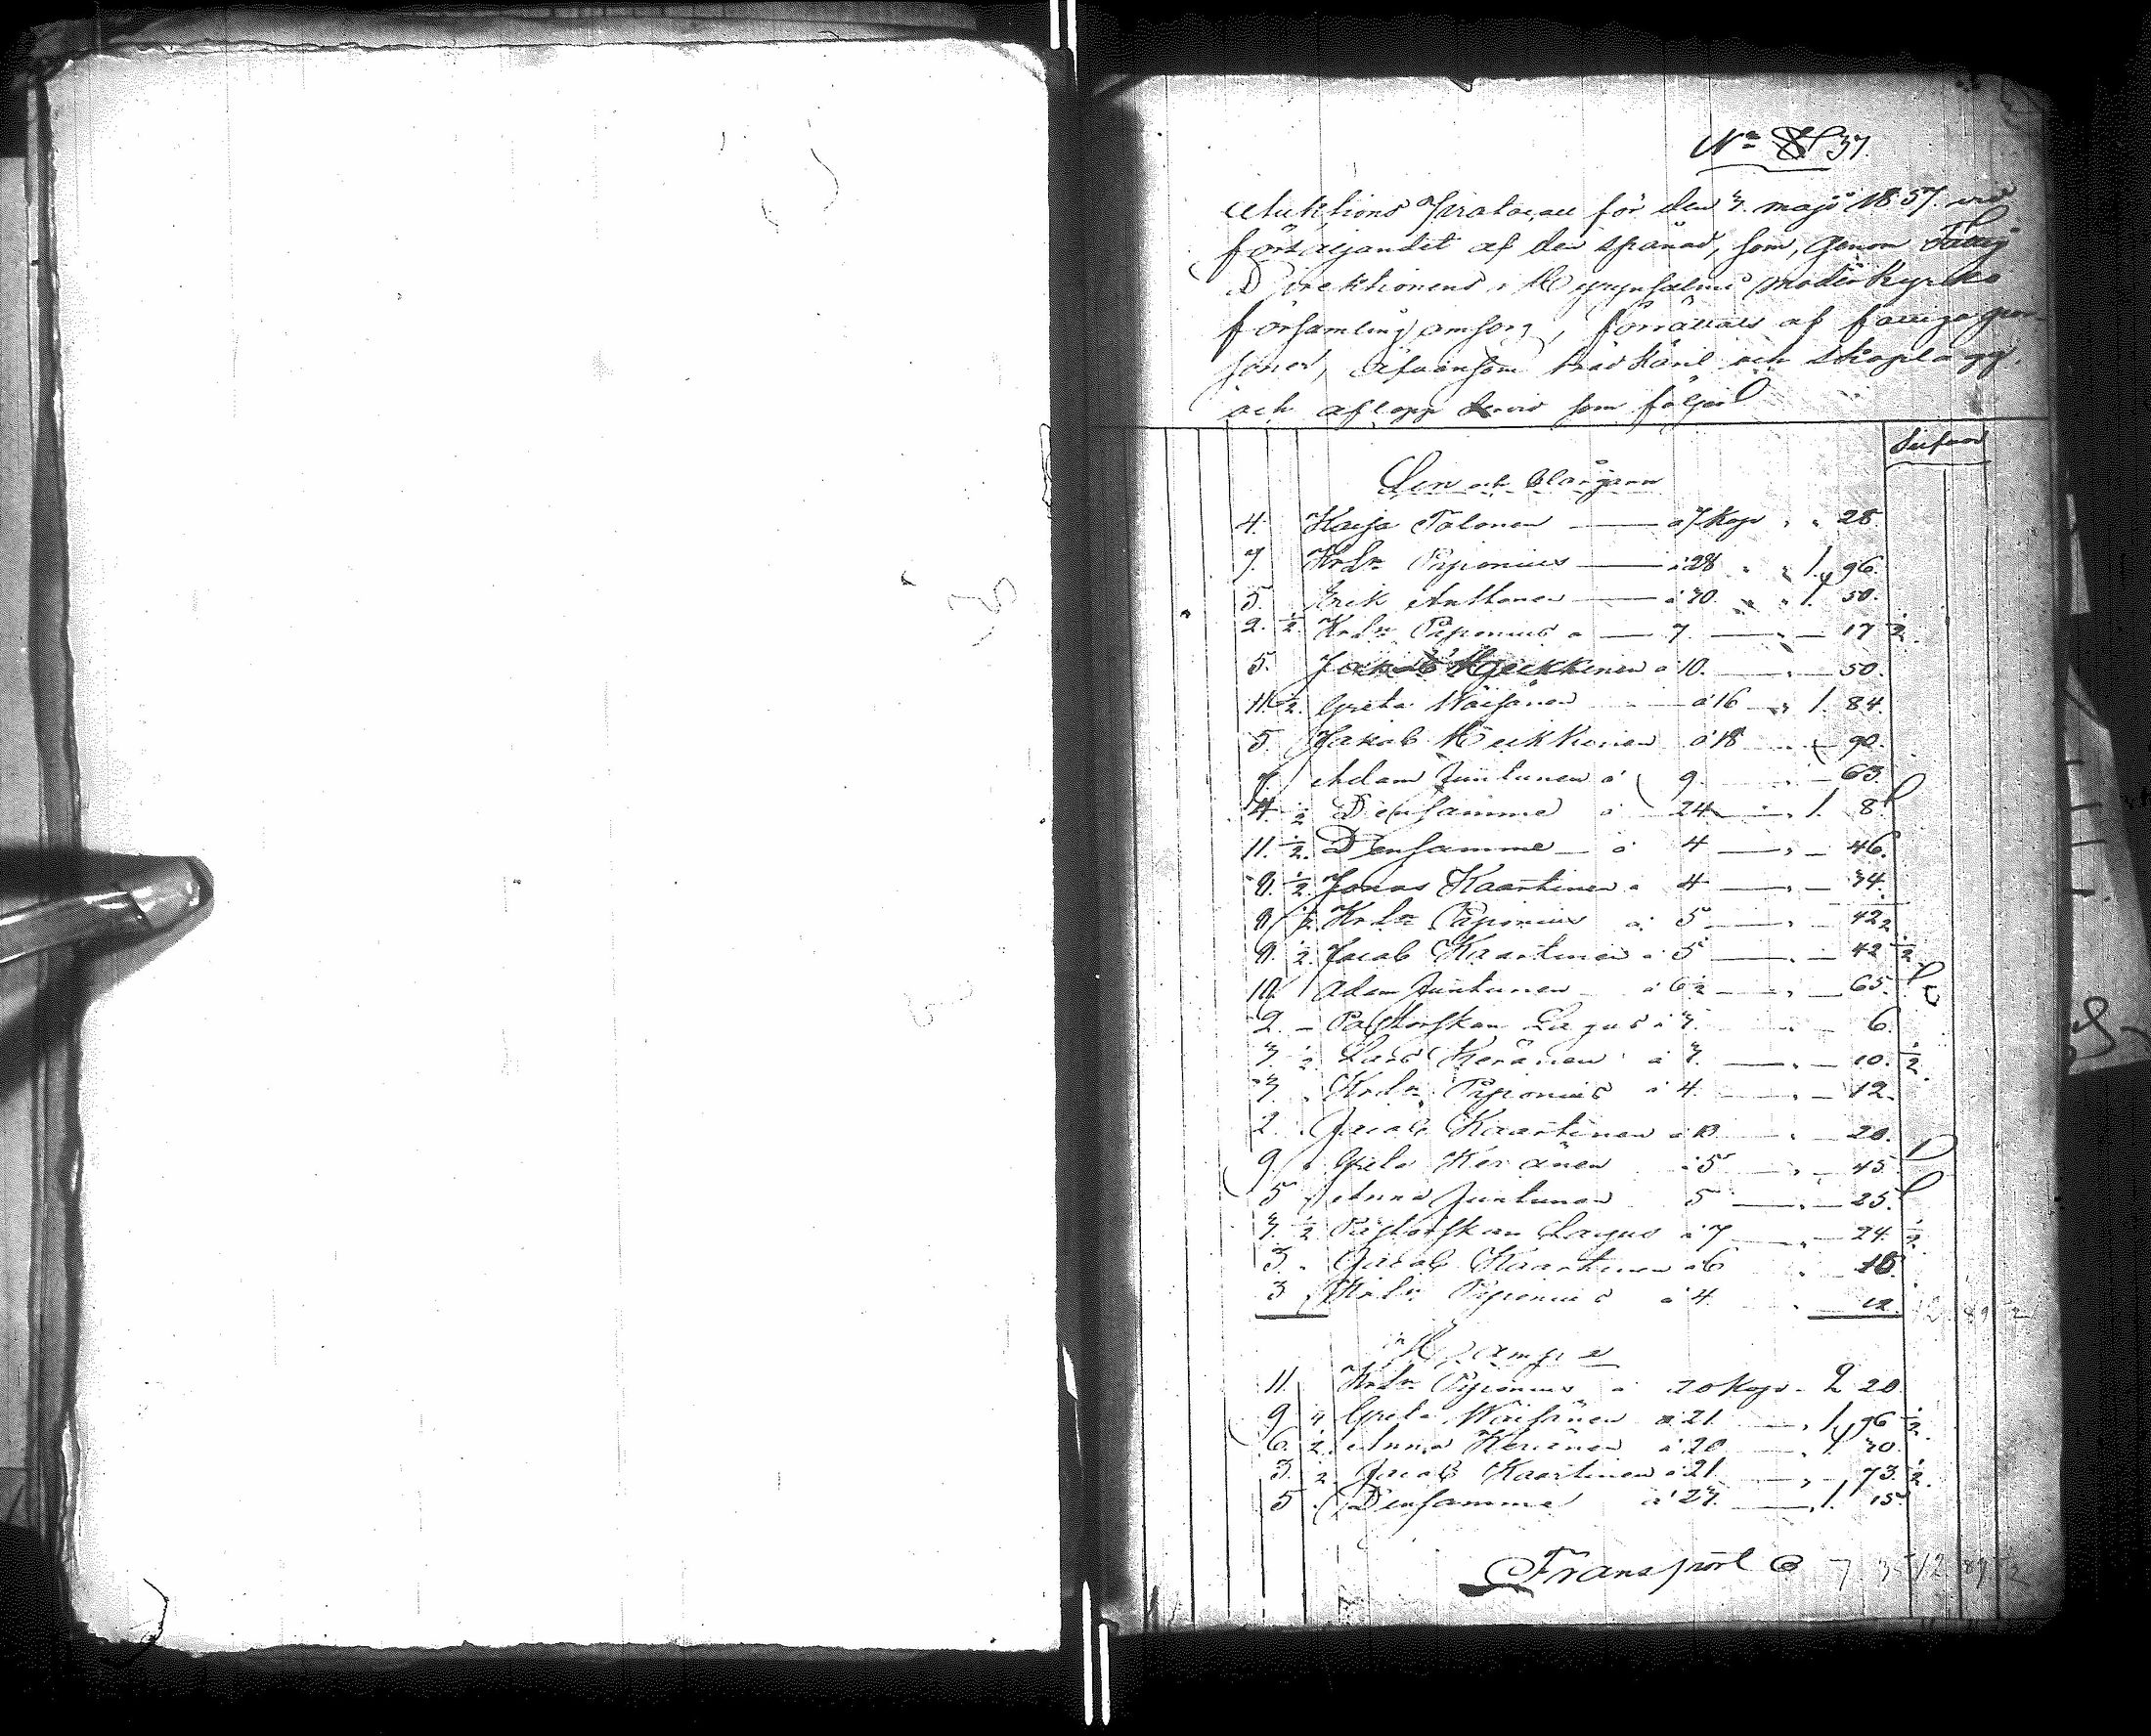 N:o 37.
Auktions Protocoll för den 7. maji 1857. vid
försäljandet af den spånad, som, genom Fattig
Direktionens i Hyrynsalmi Moderkyrko
församling omsorg, förrättats af fattiga per-
soner, äfvensom trädkäril och
och aflopp dervid som följer
Lin och blångarn
4. Kaija Tolonen — a 7 Kop. " " 28.
7. Krln Piponius — a 28 " " 1. 96.
5. Erik Anttonen — a 30. " " 1. 50.
2. ½. Krln Piponius a — 7. — " — 17 ½.
5. Jakob Heikkinen a 10. — " — 50.
11. ½. Greta Väisänen — a 16 — " 1. 84.
5. Jakob Heikkinen a 18 — 90.
7. Adam Juntunen a 9. — " — 63.
4. ½ Densamme a 24 — " 1. 8
11. ½. Densamme — a 4 — " — 46.
8. ½ Jonas Kaartinen a 4 — " — 34.
8 ½. Krln Piponius a 5 — " — 42 ½
8. ½. Jacob Kaartinen a 5 — " — 42 ½
10. Adam Juntunen a 6½ — " — 65.
2. — Pastorskan Lagus a 3. " — 6.
3. ½ Lars Keränen a 3. — " — 10. ½.
3. " Krln Piponius a 4. — " — 12.
2. " Jacob Kaartinen a 10 — " — 20.
9. " Greta Keränen a 5 — " — 45.
5 " Anna Juntunen 5 — " — 25.
3. ½ Pastorskan Lagus a 7 — " — 24. ½.
3. " Jacob Kaartinen a 6 " 18.
3 " Krln Piponius a 4. " 12. 12 89 ½
Hampa
11. Krln Piponius a 20 Kop. " 2 20.
9 " Greta Väisänen a 21. — " 1. 96 ½.
6. ½. Anna Keränen a 20 — " 1. 30.
3. ½. Jacob Kaartinen a 21. — " — 73. ½.
5. Densamme a 23. — " 1. 15.
Transport 7 35 12 89 ½